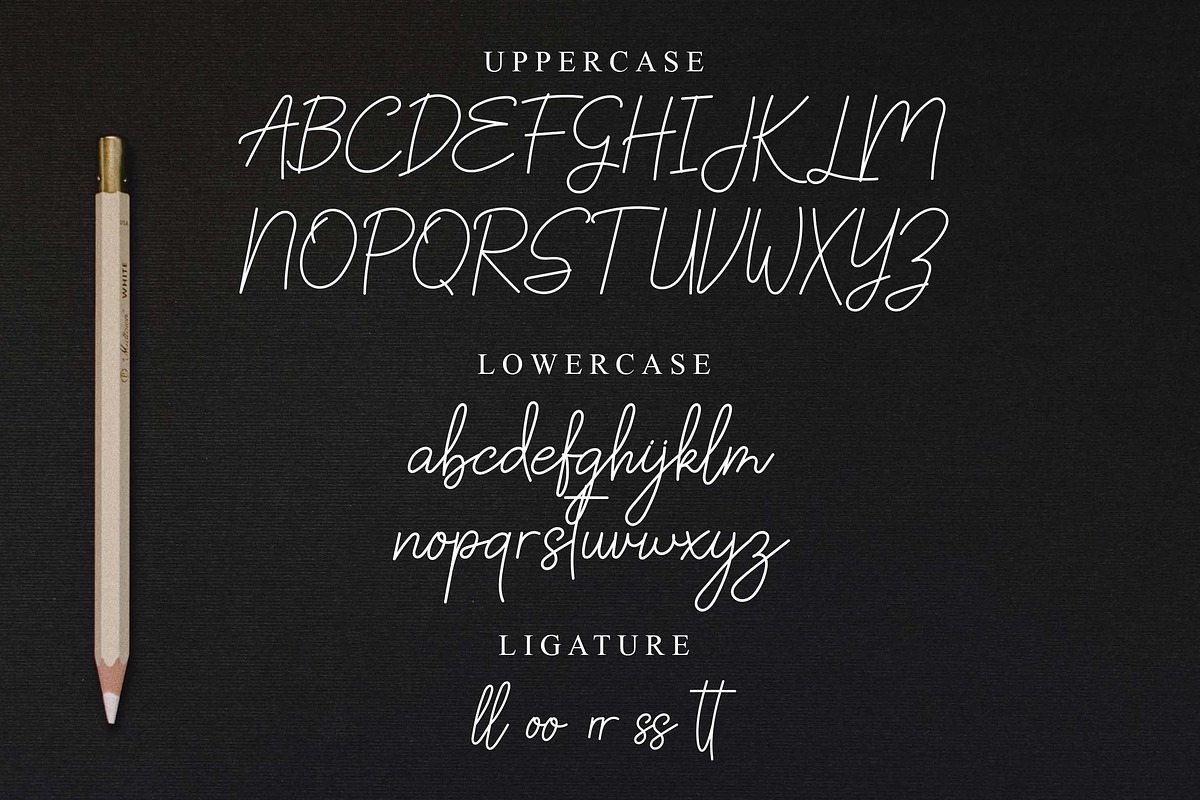 UPPERCASE
ABCDEFGHIJKLM
NOPQRSTUVWXYZ
LOWERCASE
abcdefghijklm
nopqrstuvwxyz
LIGATURE
ll oo rr ss tt
USA
WHITE